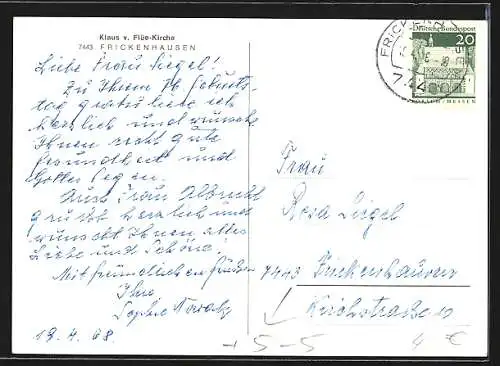 Klaus v. Flüe-Kirche
7443 FRICKENHAUSEN
Liebe Frau Siegel!
Zu Ihrem Geburts-
tag gratuliere ich
herzlich und wünsche
Ihnen recht gute
Gesundheit und
Gottes Segen.
Auch Frau Albrecht
grüßt herzlich und
wünscht Ihnen alles
Liebe und Schöne!
Mit freundlichen Grüßen
Ihre
Sophie
19.4.68.
Deutsche Bundespost
20
HESSEN
Frau
Rosa Siegel
7443 Frickenhausen
Kirchstrasse 10
5-5
4 €